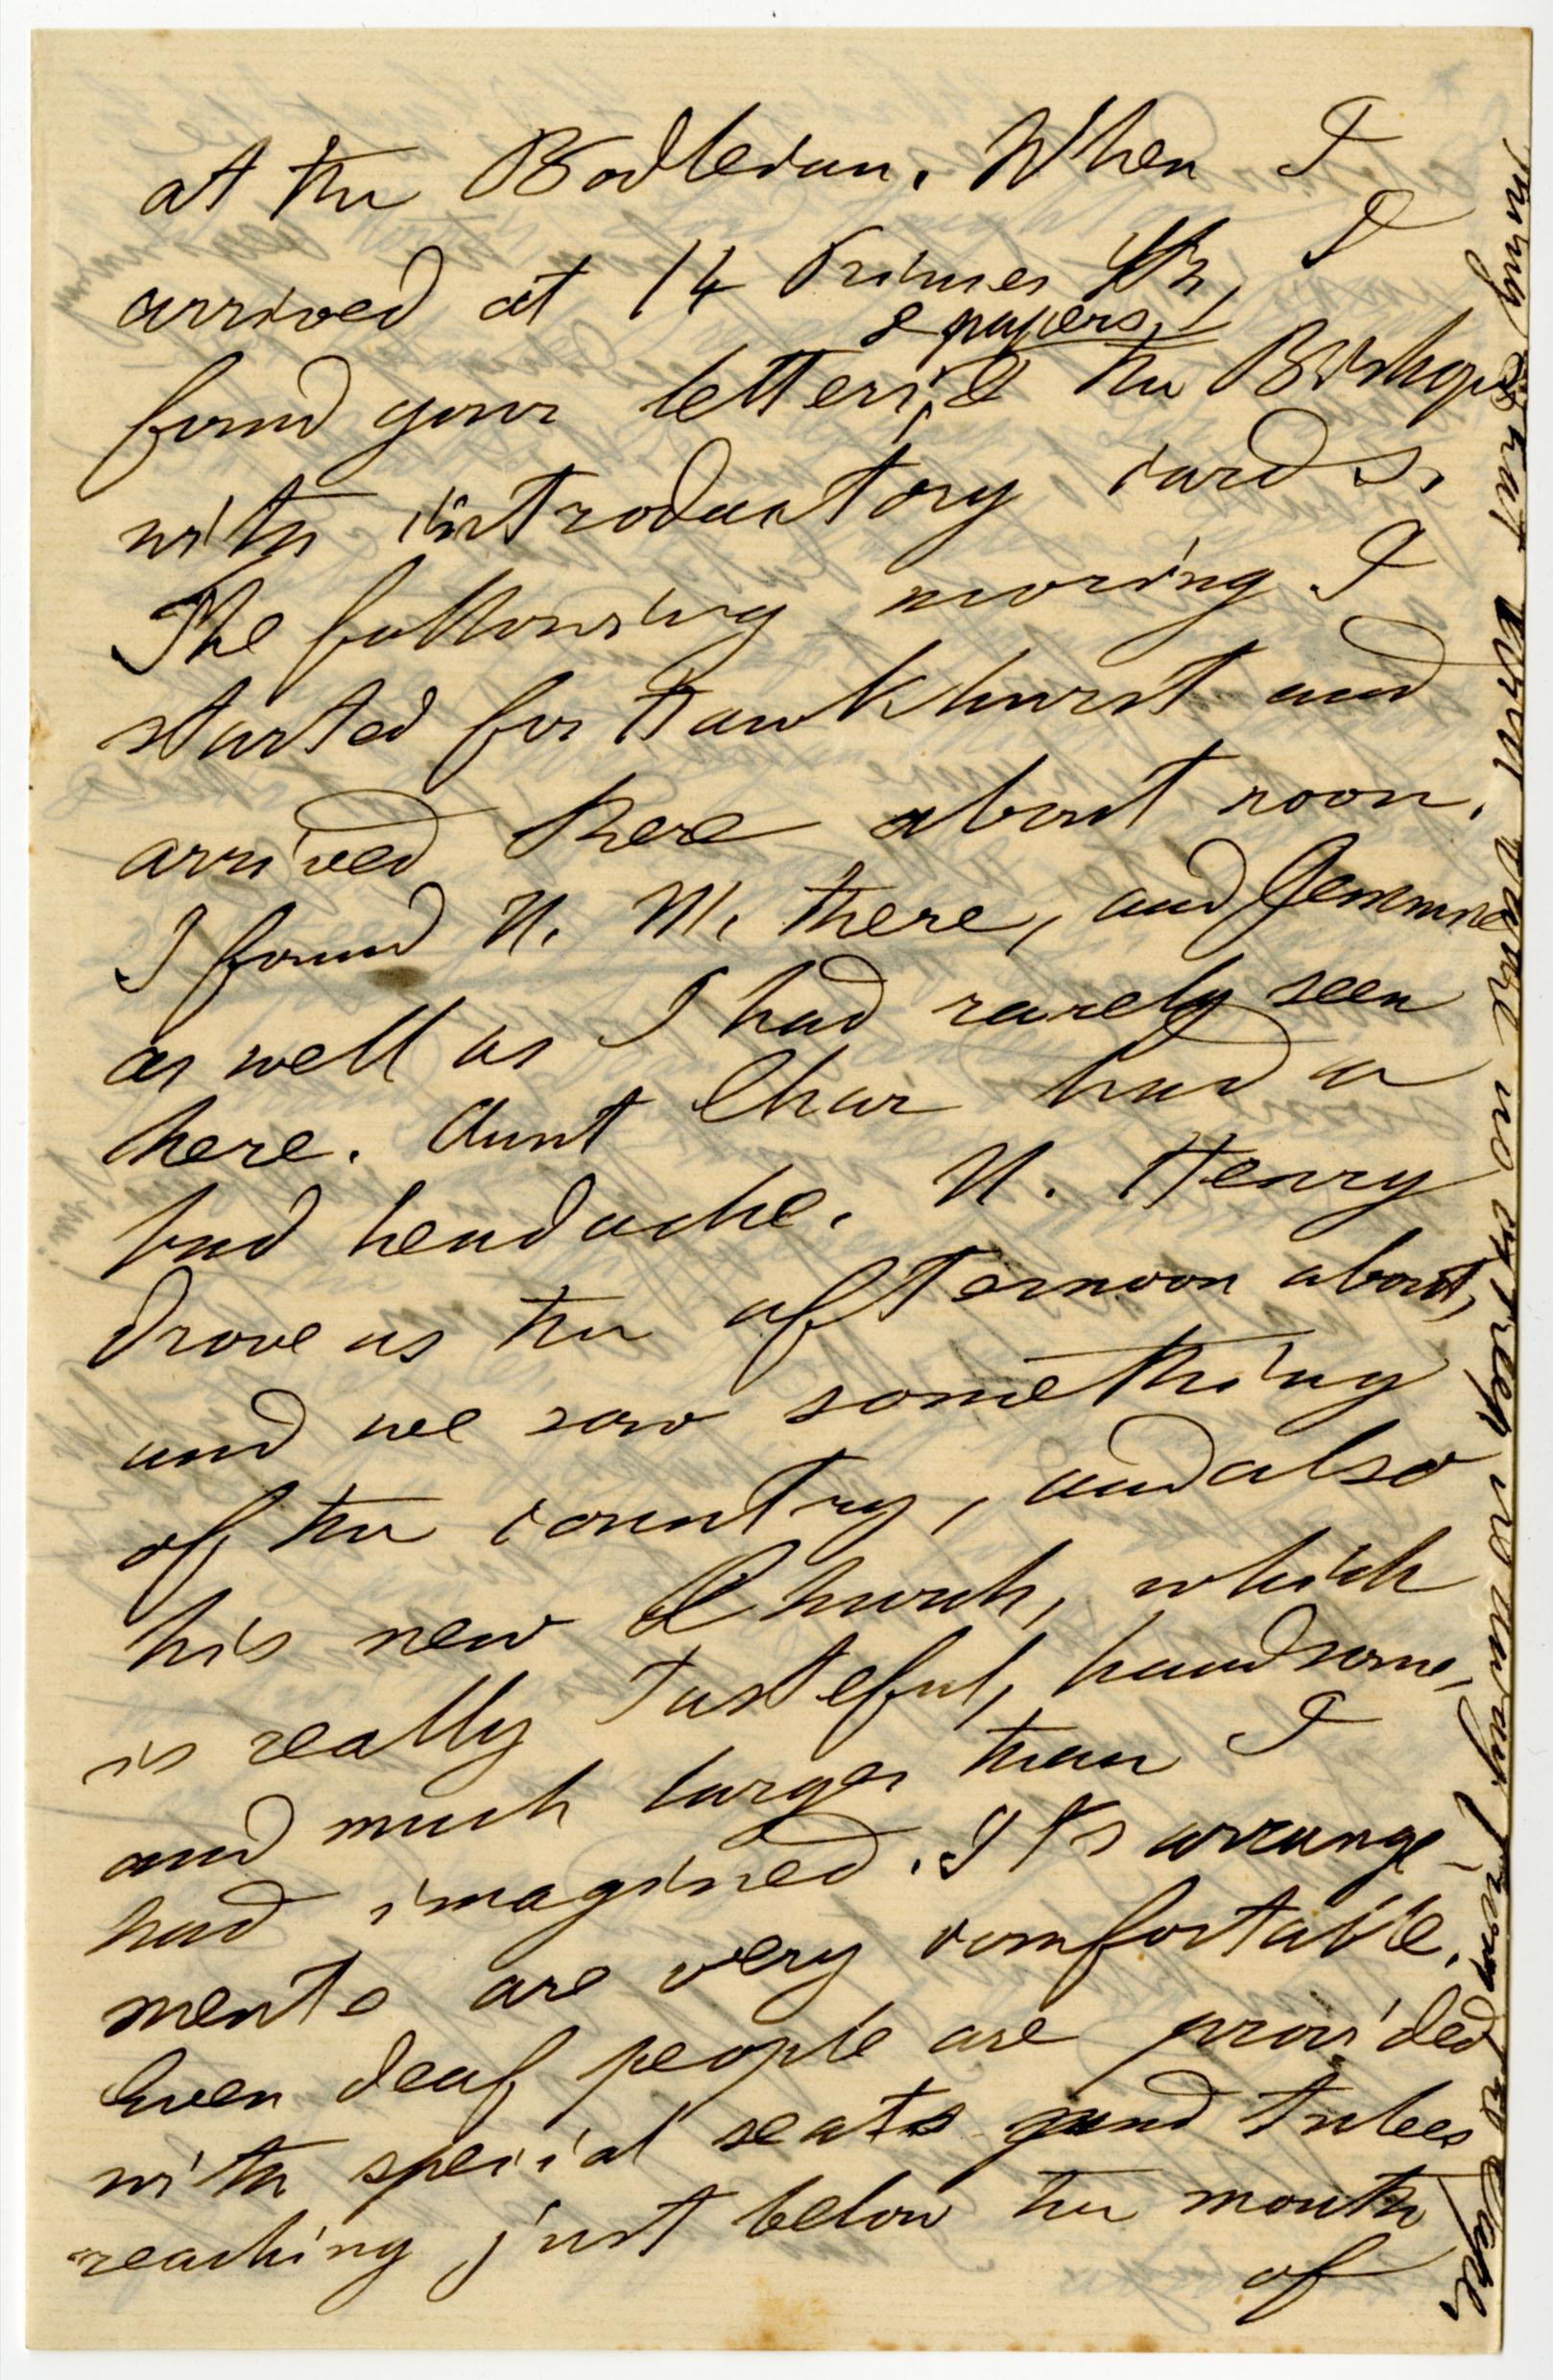 at the Bodleian. When I
arrived at 14 Princes Str, I
& papers,
found your letters, & the Bishops
with introductory cards.
The following moring I
started for Hawkhurst and
arrived here about noon.
I found U. M. there, and Jemima
as well as I had rarely seen
here. Aunt Char had a
bad headache. U. Henry
drove us the afternoon about,
and we saw something
of the country, and also
his new Church, which
is really tasteful, handsome,
and much larger than I
had imagined. Its arrange-
ments are very comfortable.
Even deaf people are provided
with special seats and tubes
reaching just below the mouth
of
many that will take no